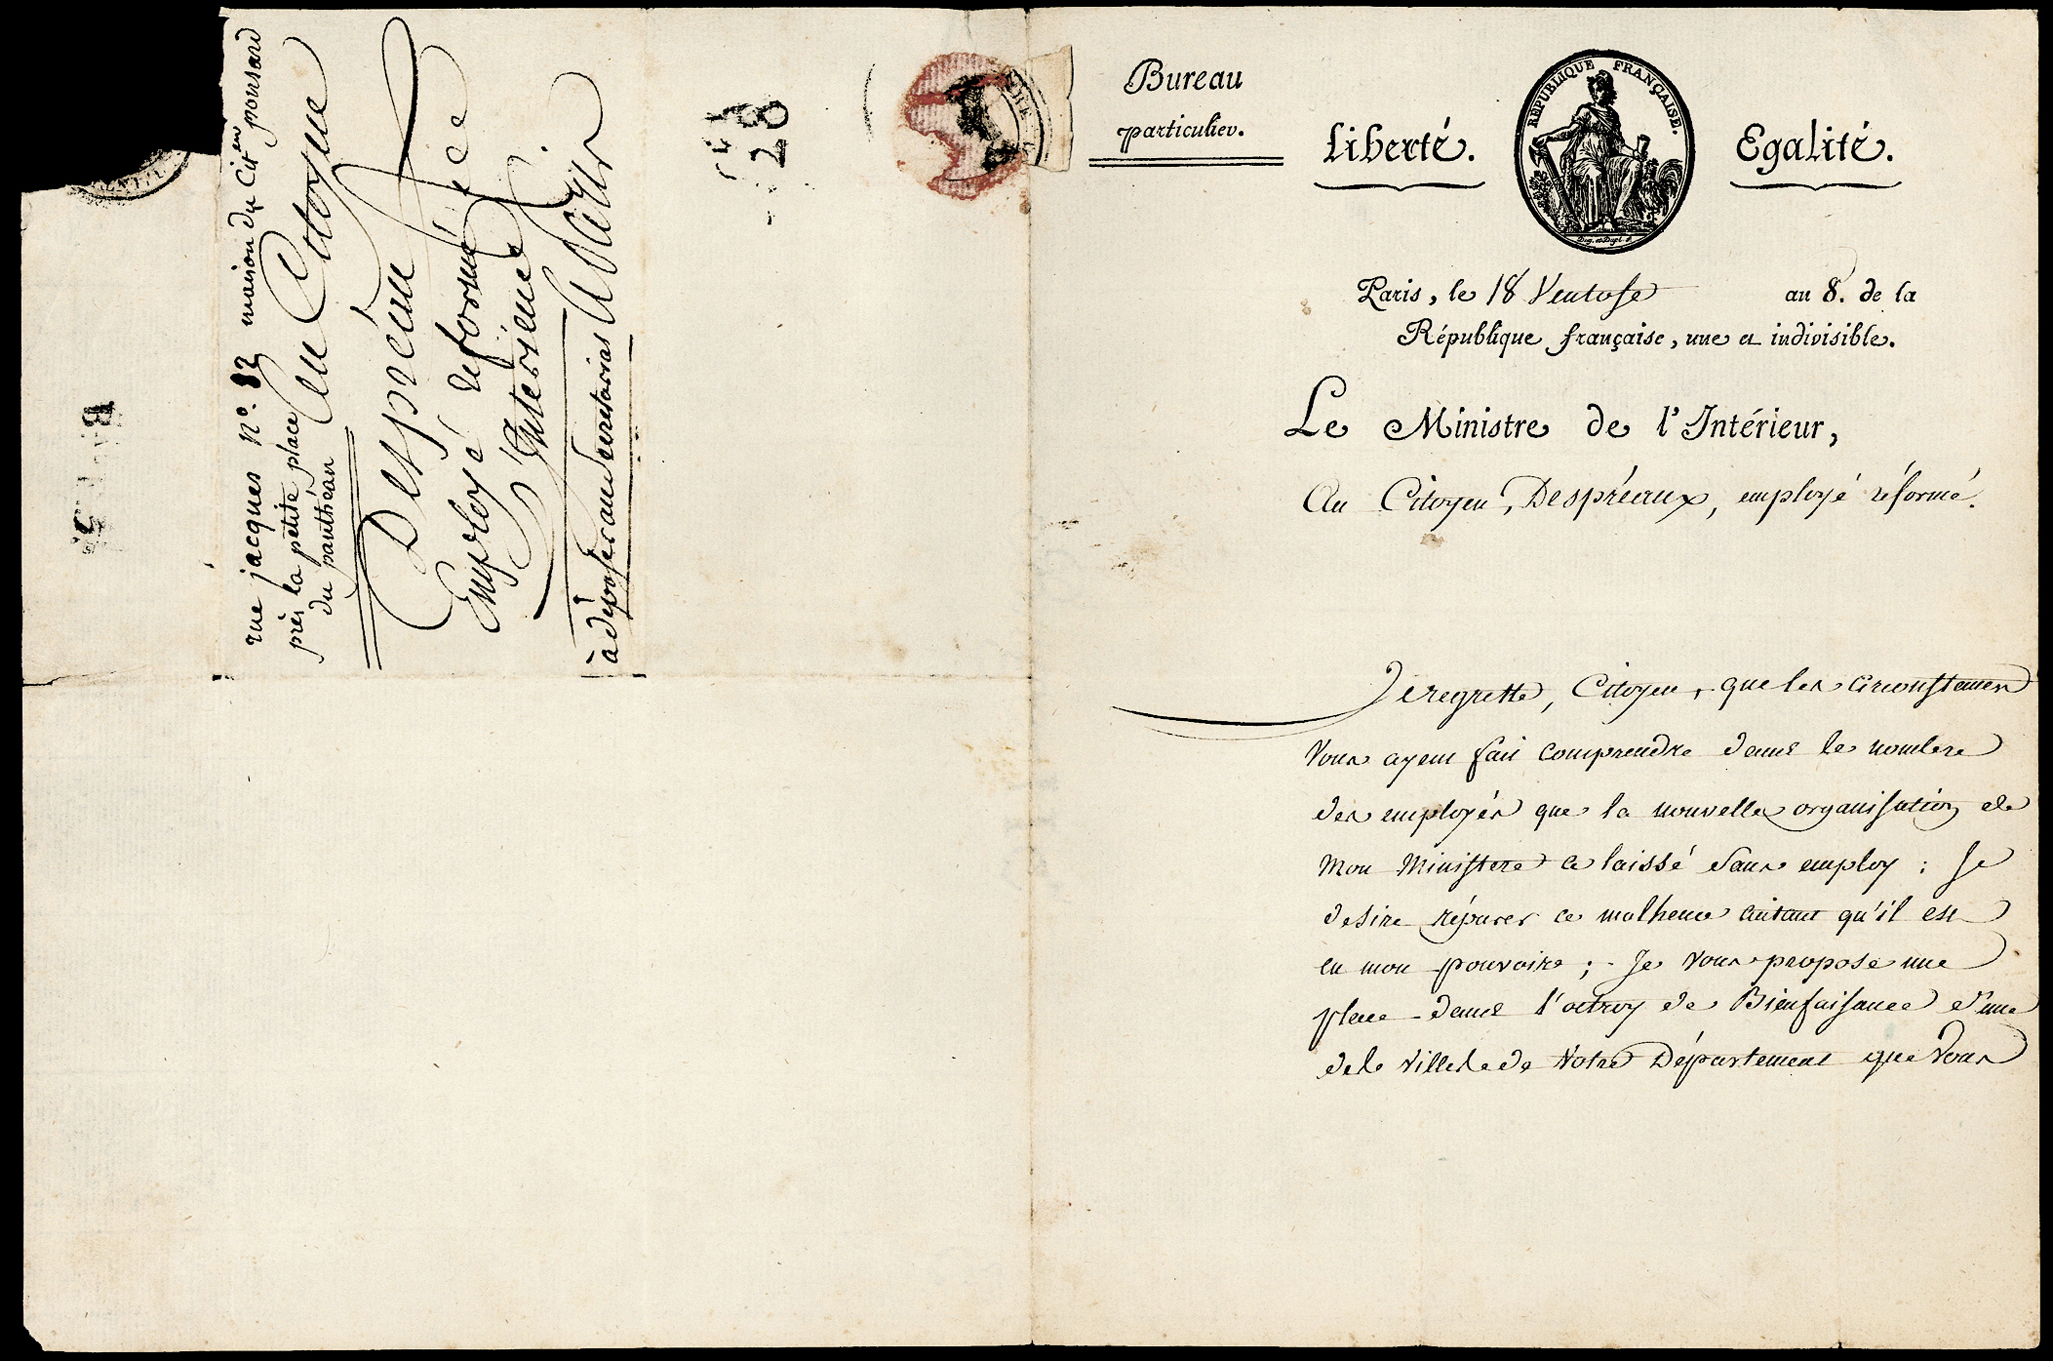 Bureau
particulier.
Liberté.
RÉPUBLIQUE FRANÇAISE.
Egalité.
Paris, le 18 Ventose an 8. de la
République française, une et indivisible.
Le Ministre de l'Intérieur,
Au Citoyen Despréaux, employé réformé.
Je regrette, Citoyen, que les circonstances
Vous ayent fait comprendre dans le nombre
des employés que la nouvelle organisation de
Mon Ministere a laissé sans employ : Je
desire réparer ce malheur autant qu'il est
en mon pouvoir ; Je vous propose une
place dans l'octroy de Bienfaisance d'une
des villes de Votre Département que vous
rue jacques n°. 82 maison du Cit en ponsard
près la petite place
du panthéan
Au Citoyen
Despréau
Employé réformé de
L'Interieur
à déposer au Secretariat
A Paris
28